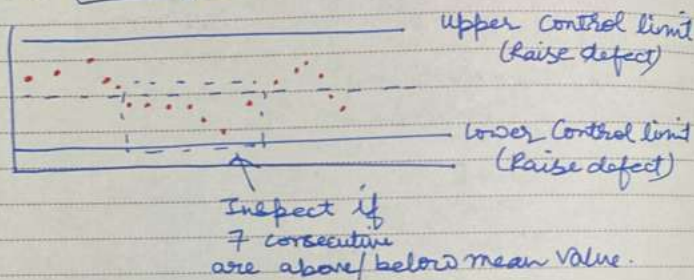 Upper Control limit
(Raise defect)
Lower Control limit
(Raise defect)
Inspect if
7 consecutive
are above/below mean value.